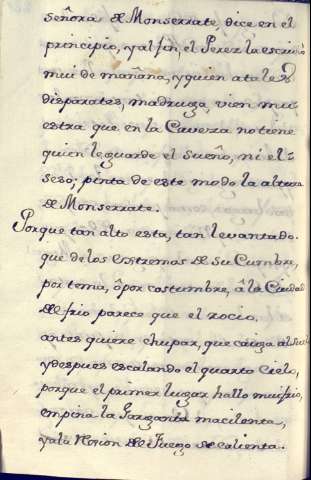 señora de Monserrate, dice en el
principio, y al fin, el Perez la escrivio
mui de mañana, y quien ata le
disparates, madruga, vien mu-
estra que en la Caveza no tiene
quien le guarde el sueño, ni el
seso; pinta de este modo la altura
de Monserrate.
Porque tan alto esta, tan levantado.
que de los extremos de su Cumbre,
por tema, ô por costumbre, â la Ciudad
del frio parece que el rocio,
antes quiere chupar, que caiga al suelo
y despues escalando el quarto Cielo,
porque el primer lugar hallo mui frio,
empina la Garganta macilenta,
y al Horion de Fuego se calienta.